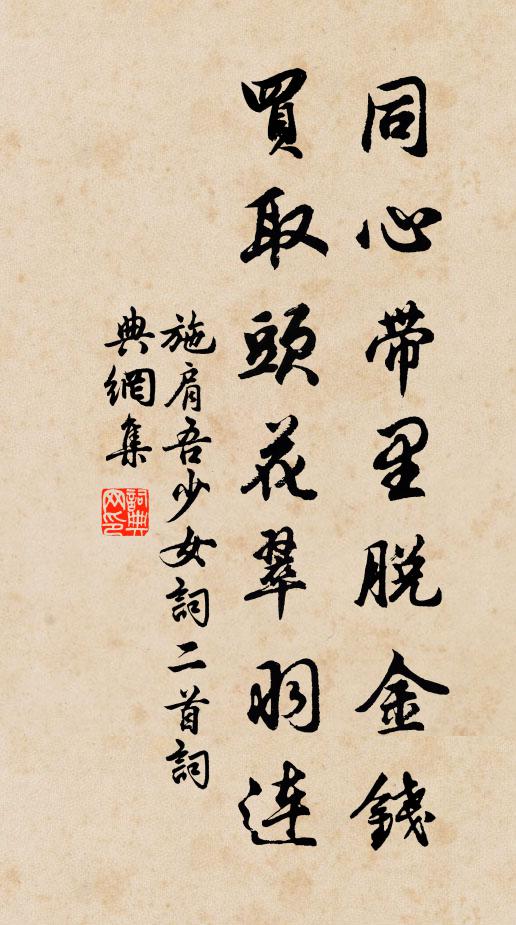 同心带里脱金錢
買取頭花翠羽連
施肩吾少女詞二首詞
典網集
詞典网印